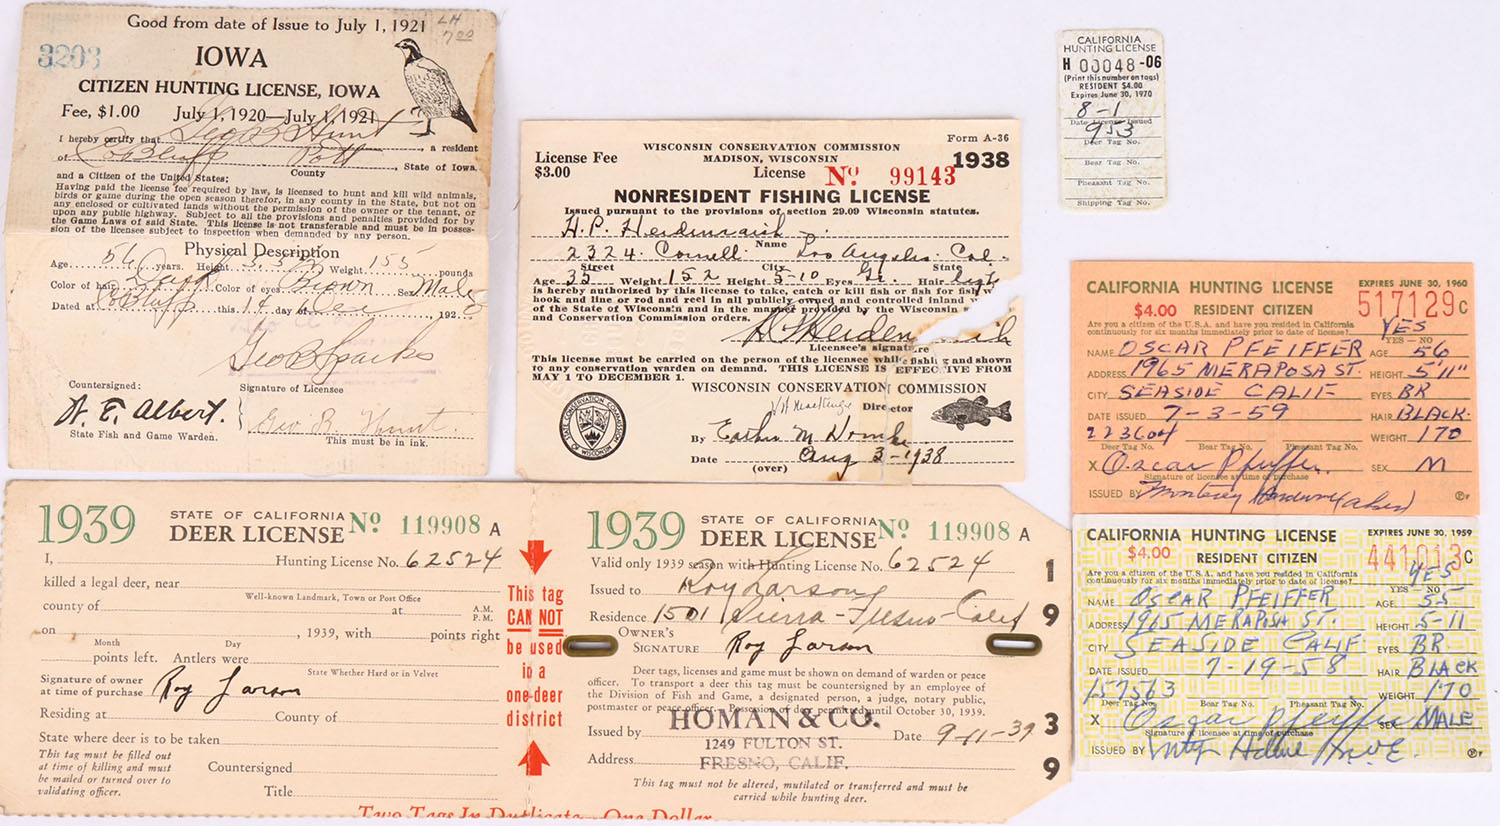 Good from date of Issue to July 1, 1921
LH
7.00
3203
IOWA
CITIZEN HUNTING LICENSE, IOWA
Fee, $1.00 July 1, 1920—July 1, 1921
I hereby certify that Geo B Hunt, a resident
of Co Bluffs Pott, State of Iowa,
County
and a Citizen of the United States;
Having paid the license fee required by law, is licensed to hunt and kill wild animals,
birds or game during the open season therefor, in any county in the State, but not on
any enclosed or cultivated lands without the permission of the owner or the tenant, or
upon any public highway. Subject to all the provisions and penalties provided for by
the Game Laws of said State. This license is not transferable and must be in posses-
sion of the licensee subject to inspection when demanded by any person.
Physical Description
Age 56 years. Height 5.5 Weight 155 pounds
Color of hair Dark Color of eyes Brown Sex Male
Dated at Co Bluffs this 14 day of Dec, 1920
Geo B Sparks
Countersigned: Signature of Licensee
W. E. Albert.
Geo B Hunt.
State Fish and Game Warden. This must be in ink.
Form A-36
WISCONSIN CONSERVATION COMMISSION
License Fee
$3.00
MADISON, WISCONSIN
1938
License No 99143
NONRESIDENT FISHING LICENSE
Issued pursuant to the provisions of section 29.09 Wisconsin statutes.
H. P. Heidenreich
Name
2324 Cornell Los Angeles Cal.
Street City State
Age 35 Weight 152 Height 5-10 Eyes Gr. Hair Light
is hereby authorized by this license to take, catch or kill fish or fish for fish w
hook and line or rod and reel in all publicly owned and controlled inland w
of the State of Wisconsin and in the manner provided by the Wisconsin s
and Conservation Commission orders.
H P Heidenreich
Licensee's signature
This license must be carried on the person of the licensee while fishing and shown
to any conservation warden on demand. THIS LICENSE IS EFFECTIVE FROM
MAY 1 TO DECEMBER 1.
WISCONSIN CONSERVATION COMMISSION
Director
STATE CONSERVATION COMMISSION OF WISCONSIN
By
Date Aug 3-1938
(over)
CALIFORNIA
HUNTING LICENSE
H 00048-06
(Print this number on tags)
RESIDENT $4.00
Expires June 30, 1970
8-1
Date License Issued
953
Deer Tag No.
Bear Tag No.
Pheasant Tag No.
Shipping Tag No.
CALIFORNIA HUNTING LICENSE EXPIRES JUNE 30, 1960
$4.00 RESIDENT CITIZEN 517129 C
Are you a citizen of the U.S.A. and have you resided in California
continuously for six months immediately prior to date of license? YES
YES — NO
NAME OSCAR PFEIFFER AGE 56
ADDRESS 1965 MERAPOSA ST. HEIGHT 5'11"
CITY SEASIDE CALIF EYES BR
DATE ISSUED 7-3-59 HAIR BLACK.
223604 WEIGHT 170
Deer Tag No. Bear Tag No. Pheasant Tag No.
X Oscar Pfeiffer. SEX M
Signature of licensee at time of purchase
ISSUED BY Monterey Hardware
CALIFORNIA HUNTING LICENSE EXPIRES JUNE 30, 1959
$4.00 RESIDENT CITIZEN 441013 C
Are you a citizen of the U.S.A. and have you resided in California
continuously for six months immediately prior to date of license? YES
YES NO
NAME OSCAR PFEIFFER AGE 55
ADDRESS 1965 MERAPOSA ST. HEIGHT 5-11
CITY SEASIDE CALIF EYES BR
DATE ISSUED 7-19-58 HAIR BLACK
157563 WEIGHT 170
Deer Tag No. Bear Tag No. Pheasant Tag No.
X Oscar Pfeiffer SEX MALE
Signature of licensee at time of purchase
ISSUED BY
1939 STATE OF CALIFORNIA
DEER LICENSE No 119908 A
I, Hunting License No. 62524
killed a legal deer, near
Well-known Landmark, Town or Post Office
county of at A.M.
P.M.
on , 1939, with points right
Month Day
points left. Antlers were
State Whether Hard or in Velvet
Signature of owner
at time of purchase Roy Larson
Residing at County of
State where deer is to be taken
This tag must be filled out
at time of killing and must
be mailed or turned over to
validating officer.
Countersigned
Title
This tag
CAN NOT
be used
in a
one-deer
district
1939 STATE OF CALIFORNIA
DEER LICENSE No 119908 A
Valid only 1939 season with Hunting License No. 62524
Issued to Roy Larson
Residence 1501 Sierra-Fresno-Calif
OWNER'S
SIGNATURE Roy Larson
Deer tags, licenses and game must be shown on demand of warden or peace
officer. To transport a deer this tag must be countersigned by an employee of
the Division of Fish and Game, a designated person, a judge, notary public,
postmaster or peace officer. Possession of deer permitted until October 30, 1939.
Issued by HOMAN & CO. Date 9-11-39
1249 FULTON ST.
Address FRESNO, CALIF.
This tag must not be altered, mutilated or transferred and must be
carried while hunting deer.
1
9
3
9
Two Tags In Duplicate—One Dollar